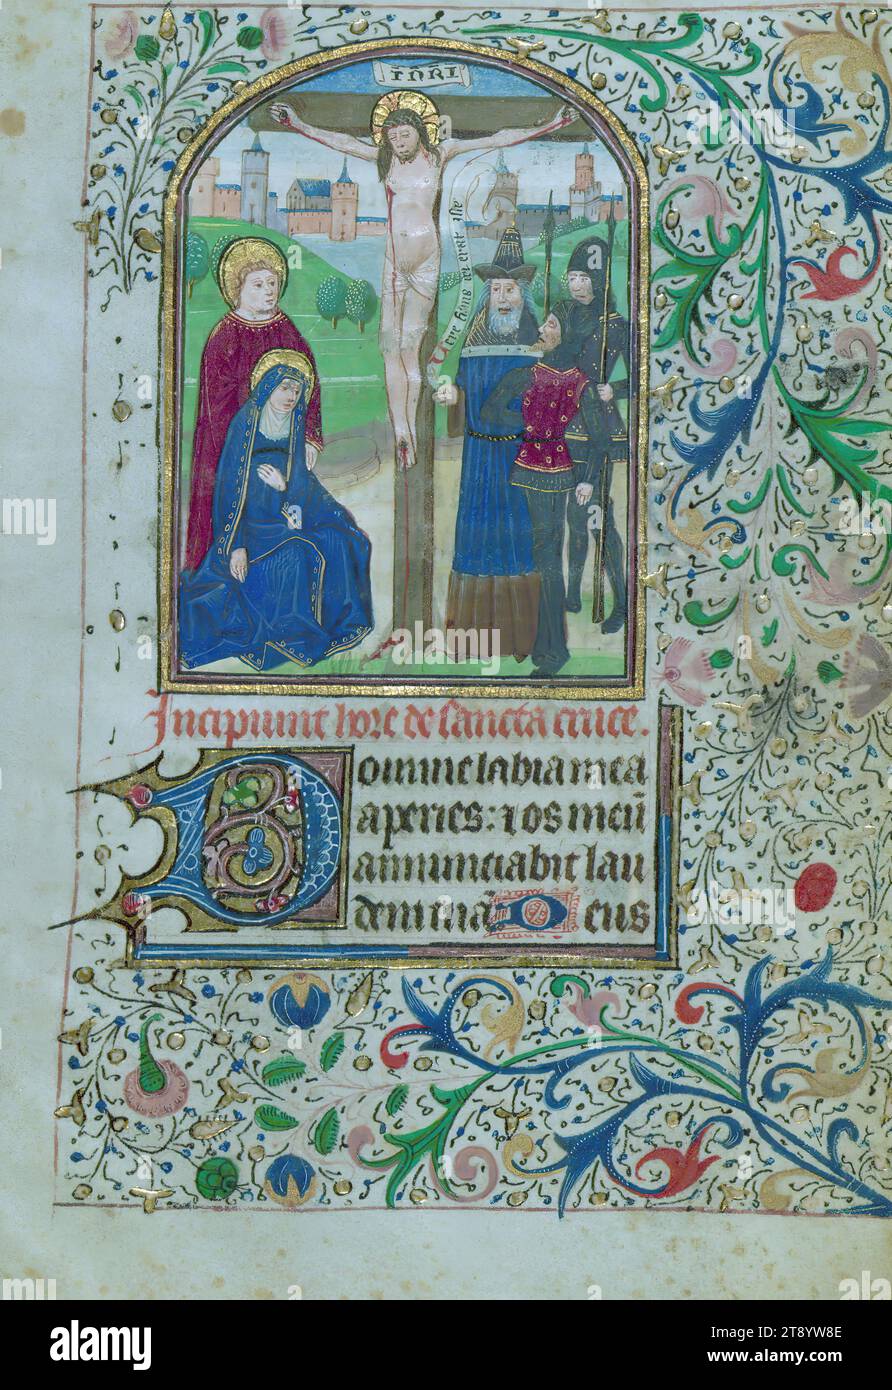 INRI
Vere hous
Incipiunt hore de sancta cruce.
Domine labia mea
aperies: ⁊ os meũ
annunciabit lau
dem tuã Deus
alamy
Image ID: 2T8YW8E
www.alamy.com